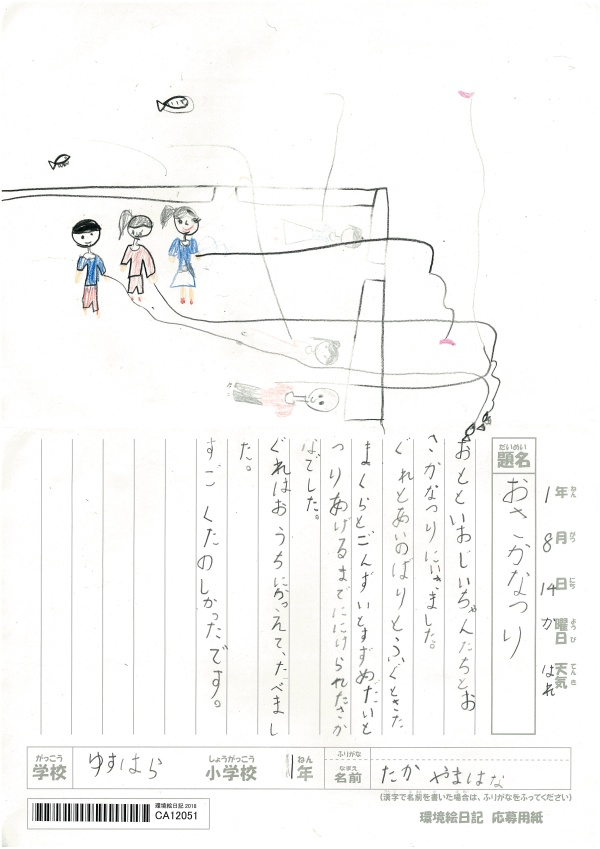 だいめい
題名
おさかなつり
1年 ねん
8月 がつ
14日 にち
か曜日 ようび
天気 てんき はれ
おとといおじいちゃんたちとお
さかなつりにいきました。
ぐれとあいのばりとふぐときた
まくらとごんずいとすずめだいと
つりあげるまでににげられたさか
なでした。
ぐれはおうちにかえて、たべまし
た。
すごくたのしかったです。
がっこう
学校
ゆすはら
しょうがっこう
小学校
1年 ねん
ふりがな
なまえ
名前
たかやまはな
(漢字で名前を書いた場合は、ふりがなをふってください)
環境絵日記 2018
CA12051
環境絵日記 応募用紙